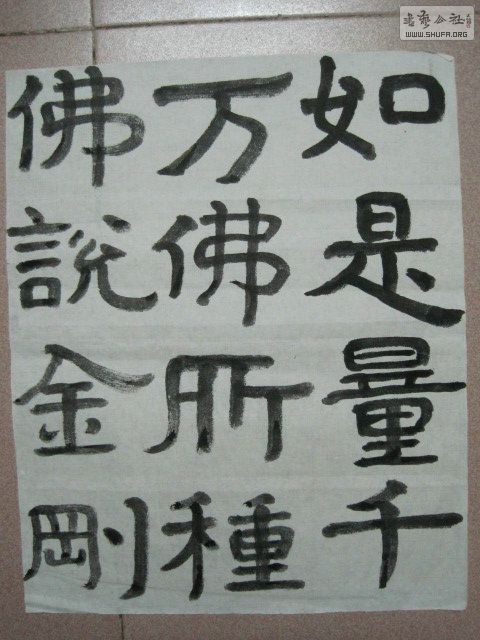 如是量千
万佛所種
佛說金剛
書藝公社
WWW.SHUFA.ORG